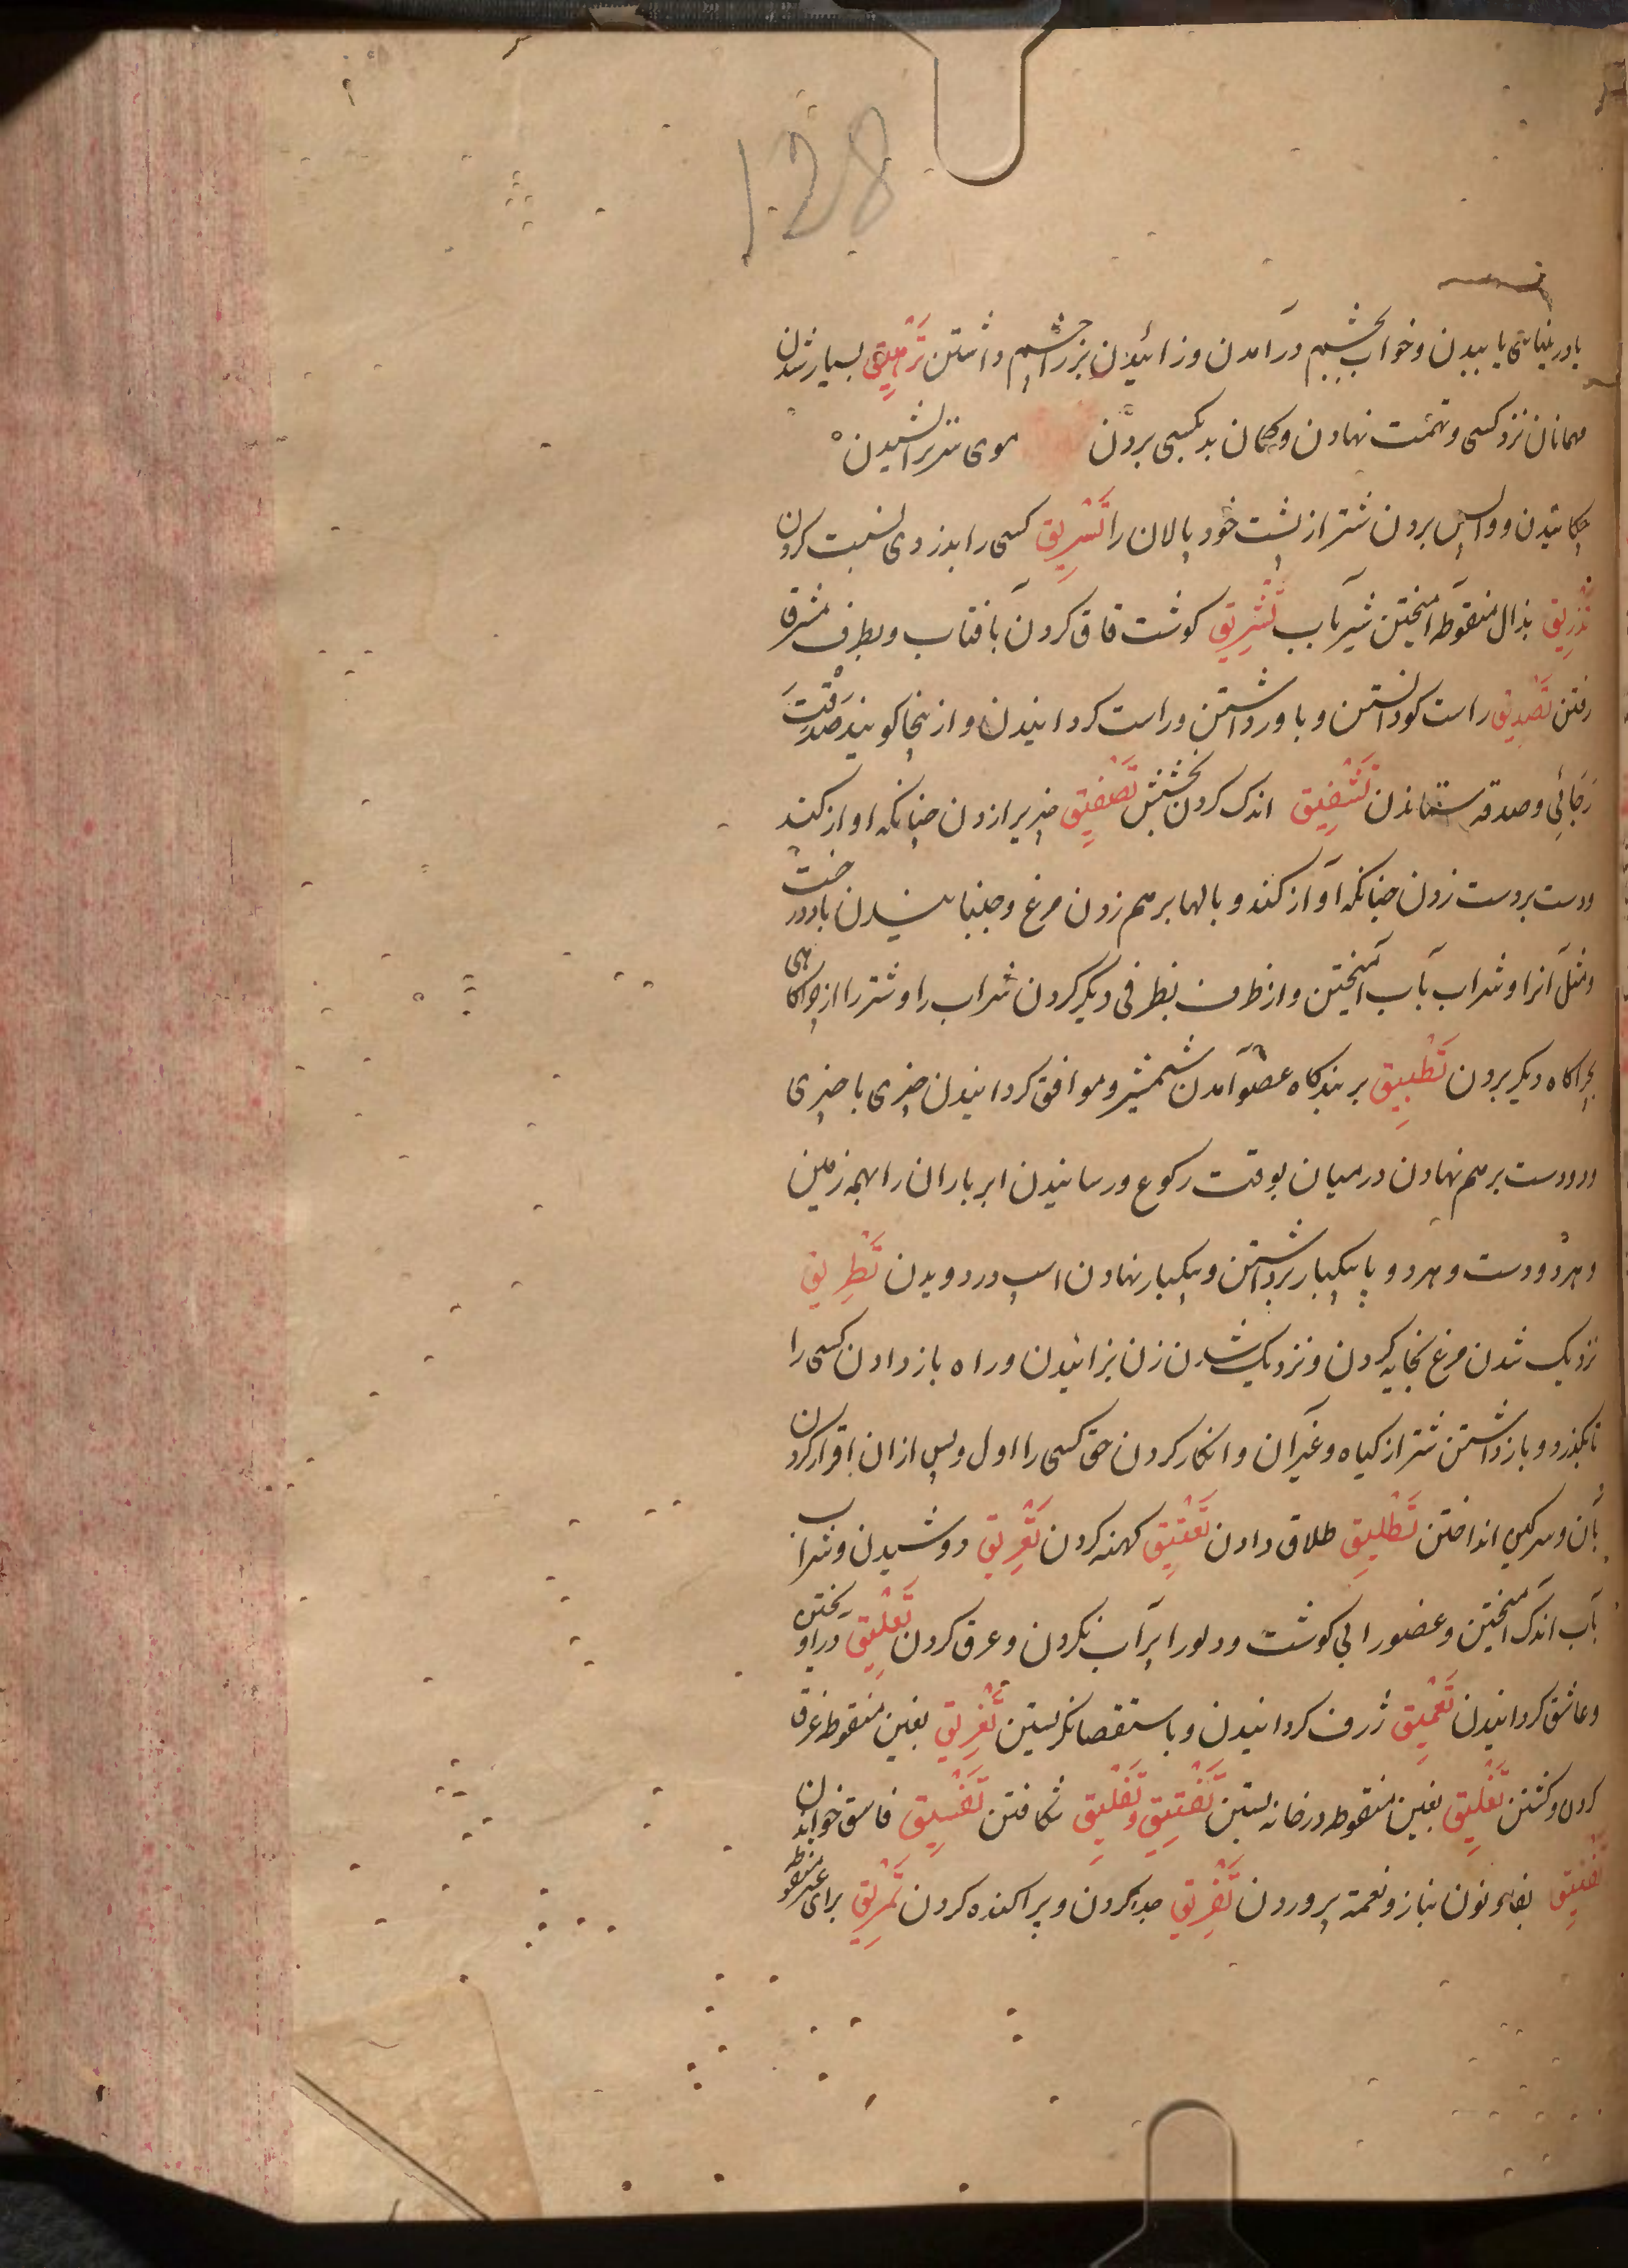 128
یابیدن و خواب بچشم درآمدن و زائیدن بز را چشم داشتن تَرْهِیق بسیار شدن
مهمانان نزد کسی و تهمت نهادن و کمان بد بکسی بردن موی ستر تراشیدن
چکانیدن و واپس بردن شتر از پشت خود پالان را تَسْرِیق کسی را بدزدی نسبت کردن
بذال منقوطه آمیختن شیر بآب تَشْرِیق کوشت قاق کردن بآفتاب و بطرف مشرق
رفتن تَصْدِیق راست کو دانستن و باور داشتن و راست کردانیدن و از ینجا کویند صَدَّقْتَ
رَجَائِی و صدقه ستاندن تَشْفِیق اندک کردن بخشش تَصْفِیق چیز برا زدن چنانکه اواز کند
ودست بردست زدن چنانکه آواز کند و بالها برهم زدن مرغ و جنبانیدن باد درخت
ومثل آنرا و شراب بآب آمیختن و از ظرف بظرفی دیکر کردن شراب را و شتر را از چراکاهی
بچراکاه دیکر بردن تَطْبِیق بر بندکاه عضو آمدن شمشیر و موافق کردانیدن چیزی با چیزی
ودو دست برهم نهادن در میان بوقت رکوع و رسانیدن ابر باران را بهمه زمین
وهردو دست و هردو پا بیکبار برداشتن و بیکبار نهادن اسپ در دویدن تَطْرِیق
نزدیک شدن مرغ بخایه کردن و نزدیک شدن زن بزائیدن و راه باز دادن کسی را
تا بکذرد و باز داشتن شتر از کیاه و غیر آن و انکار کردن حق کسی را اول و پس ازان اقرار کردن
بآن و سرکین انداختن تَطْلِیق طلاق دادن تَعْتِیق کهنه کردن تَعْرِیق دوشیدن و شراب
بآب اندک آمیختن و عضو را بی کوشت و دلو را پر آب نکردن و عرق کردن تَعْلِیق در آویختن
وعاشق کردانیدن تَعْمِیق ژرف کردانیدن و باستقصا نکریستن تَغْرِیق بغین منقوطه غرق
کردن و کشتن تَغْلِیق بغین منقوطه در خانه بستن تَفْتِیق وتَفْلِیق شکافتن تَفْسِیق فاسق خواندن
تَفْنِیق بفا و نون بناز و نعمة پروردن تَفْرِیق جدا کردن و پراکنده کردن تَمْرِیق برای غیر منقوطه